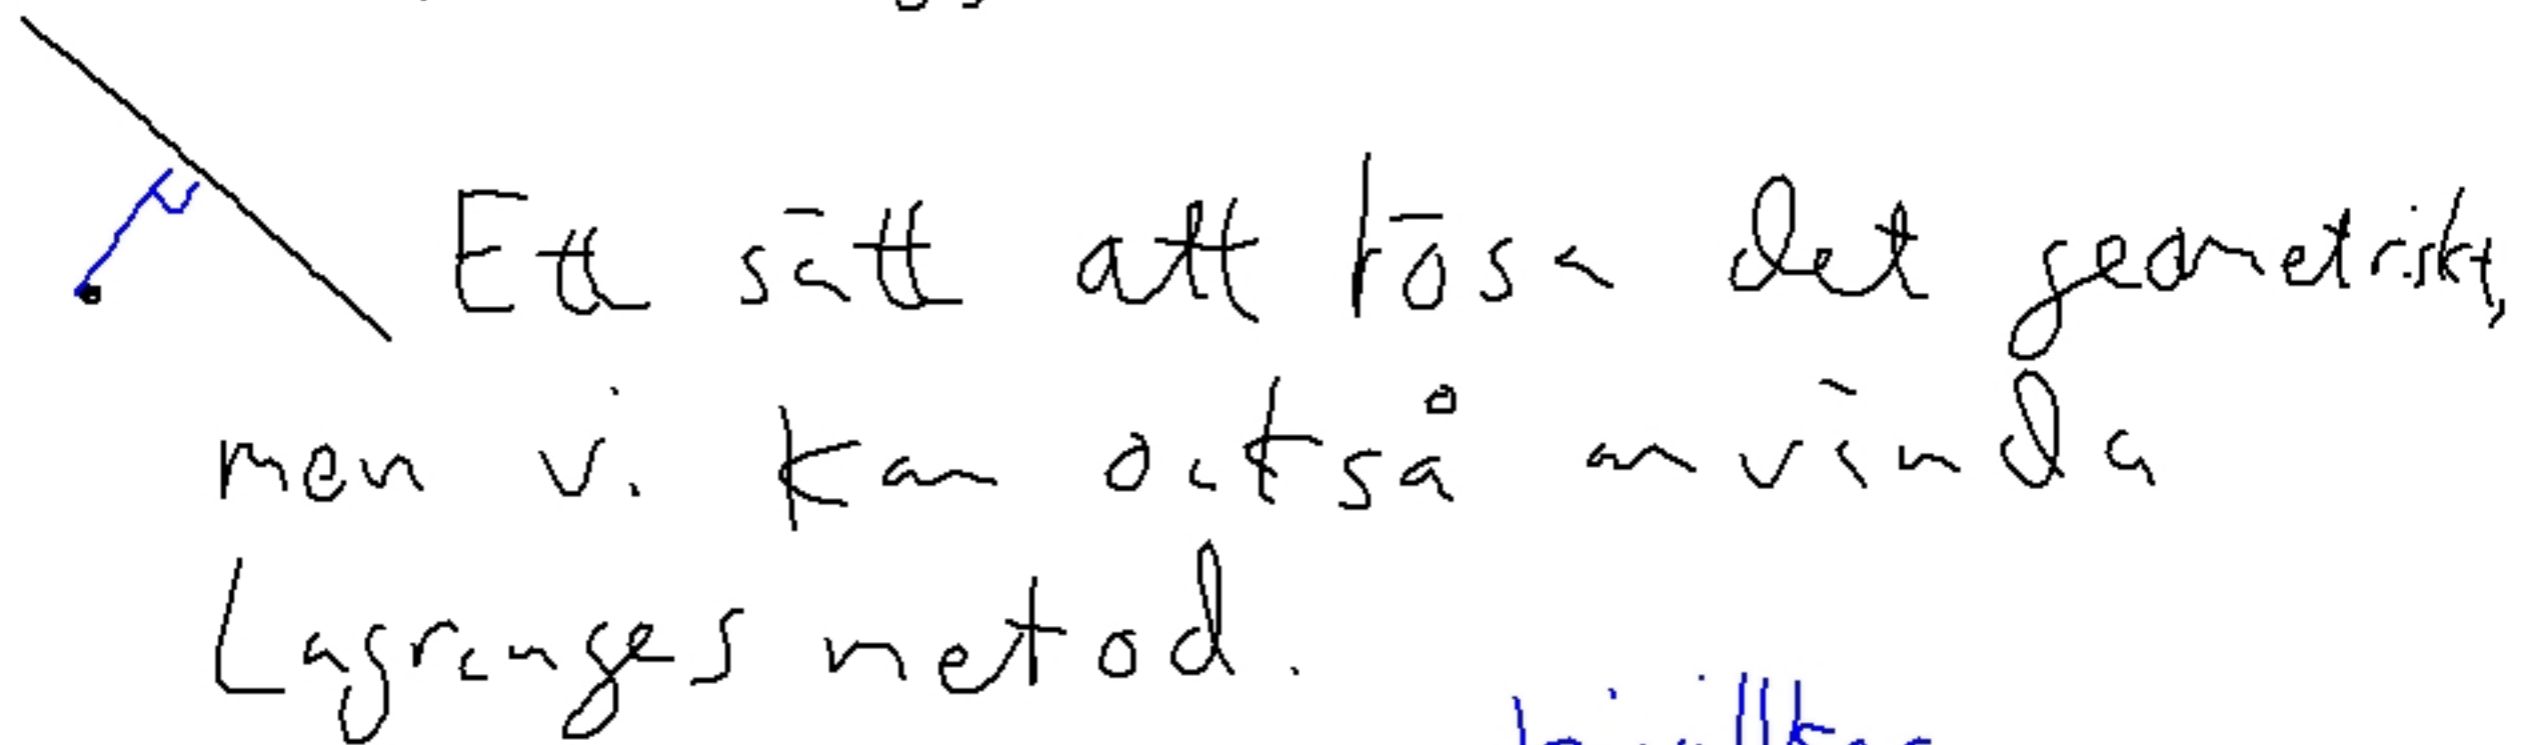 Ett sätt att lösa det geometriskt,
men vi kan också använda
Lagranges metod.